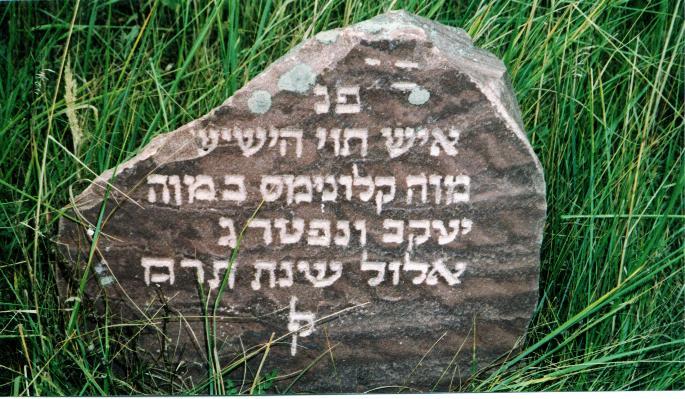 פנ
איש תוי הישיש
מוה קלונימס במוה
יעקב ונפטר ג
אלול שנת תרם